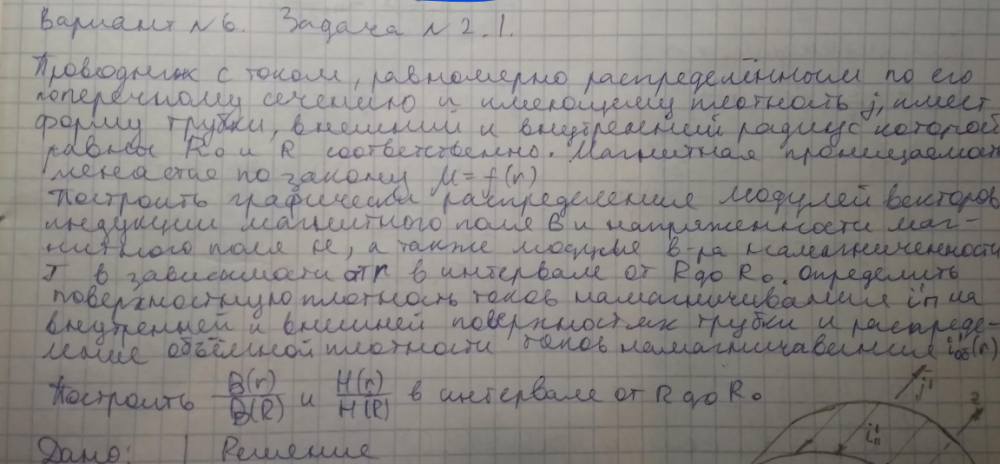 Вариант №6. Задача №2.1.
Проводник с током, равномерно распределённым по его
поперечному сечению и имеющему плотность j, имеет
форму трубки, внешний и внутренний радиус которой
равны R₀ и R соответственно. Магнитная проницаемость
меняется по закону μ=f(r)
Построить графически распределение модулей векторов
индукции магнитного поля B и напряженности маг-
нитного поля H, а также модуля в-ра намагниченности
J в зависимости от r в интервале от R до R₀. Определить
поверхностную плотность токов намагничивания i'п на
внутренней и внешней поверхностях трубки и распреде-
ление объёмной плотности токов намагничивания i'об(r)
Построить B(r)/B(R) и H(r)/H(R) в интервале от R до R₀
j
i'п
Дано: Решение